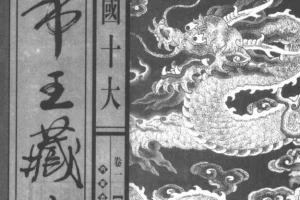 國十大
帝王藏
卷一